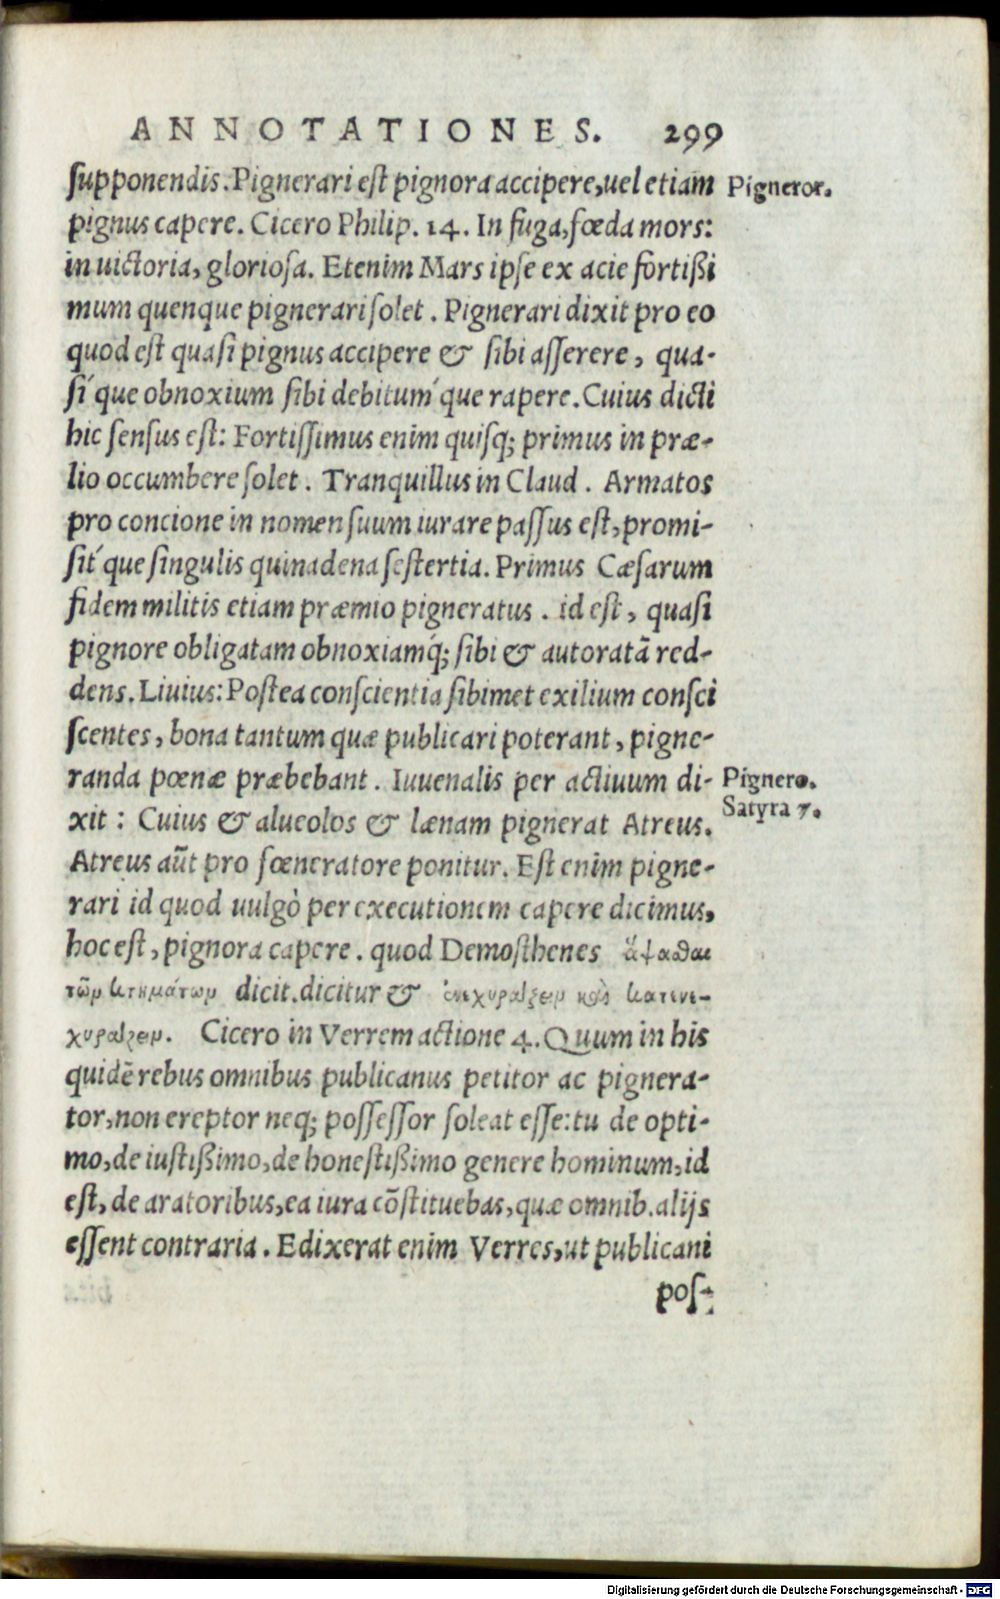 ANNOTATIONES. 299
supponendis. Pignerari est pignora accipere, uel etiam Pigneror.
pignus capere. Cicero Philip. 14. In fuga, fœda mors:
in uictoria, gloriosa. Etenim Mars ipse ex acie fortißi
mum quenque pignerari solet. Pignerari dixit pro eo
quod est quasi pignus accipere & sibi asserere, qua-
si´que obnoxium sibi debitum´que rapere. Cuius dicti
hic sensus est: Fortissimus enim quisq; primus in præ-
lio occumbere solet. Tranquillus in Claud. Armatos
pro concione in nomen suum iurare passus est, promi-
sit´que singulis quinadena sestertia. Primus Cæsarum
fidem militis etiam præmio pigneratus. id est, quasi
pignore obligatam obnoxiamq́; sibi & autoratã red-
dens. Liuius: Postea conscientia sibimet exilium consci
scentes, bona tantum quæ publicari poterant, pigne-
randa pœnæ præbebant. Iuuenalis per actiuum di- Pignero.
xit: Cuius & alueolos & lænam pignerat Atreus. Satyra 7.
Atreus aũt pro fœneratore ponitur. Est enim pigne-
rari id quod uulgò per executionem capere dicimus,
hoc est, pignora capere. quod Demosthenes ἅψασθαι
τῶν κτημάτων dicit. dicitur & ἐνεχυράζειν καὶ κατενε-
χυράζειν. Cicero in Verrem actione 4. Quum in his
quidẽ rebus omnibus publicanus petitor ac pignera-
tor, non ereptor neq; possessor soleat esse: tu de opti-
mo, de iustißimo, de honestißimo genere hominum, id
est, de aratoribus, ea iura cõstituebas, quæ omnib. alijs
essent contraria. Edixerat enim Verres, ut publicani
pos-
Digitalisierung gefördert durch die Deutsche Forschungsgemeinschaft - DFG